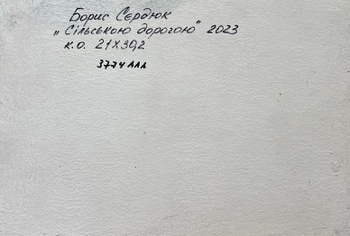 Борис Сердюк
„Сільською дорогою" 2023
к.о. 21х30,2
3774 ААА